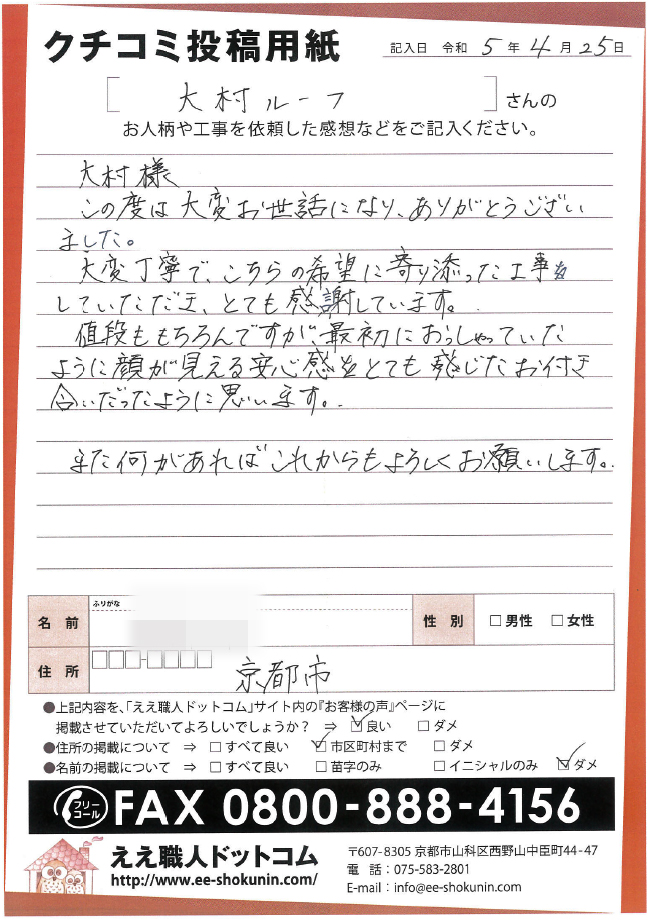 クチコミ投稿用紙
記入日 令和 5 年 4 月 25 日
[ 大村ルーフ ] さんの
お人柄や工事を依頼した感想などをご記入ください。
大村様
この度は大変お世話になり、ありがとうござい
ました。
大変丁寧で、こちらの希望に寄り添った工事を
していただき、とても感謝しています。
値段ももちろんですが、最初におっしゃっていた
ように顔が見える安心感をとても感じたお付き
合いだったように思います。
また何があればこれからもよろしくお願いします。
ふりがな
名前
性別 □男性 □女性
住所 □□□-□□□□ 京都市
●上記内容を、「ええ職人ドットコム」サイト内の『お客様の声』ページに
掲載させていただいてよろしいでしょうか? ⇒ ☑良い □ダメ
●住所の掲載について ⇒ □すべて良い ☑市区町村まで □ダメ
●名前の掲載について ⇒ □すべて良い □苗字のみ □イニシャルのみ ☑ダメ
フリーコール FAX 0800-888-4156
ええ職人ドットコム
http://www.ee-shokunin.com/
〒607-8305 京都市山科区西野山中臣町44-47
電話:075-583-2801
E-mail:info@ee-shokunin.com